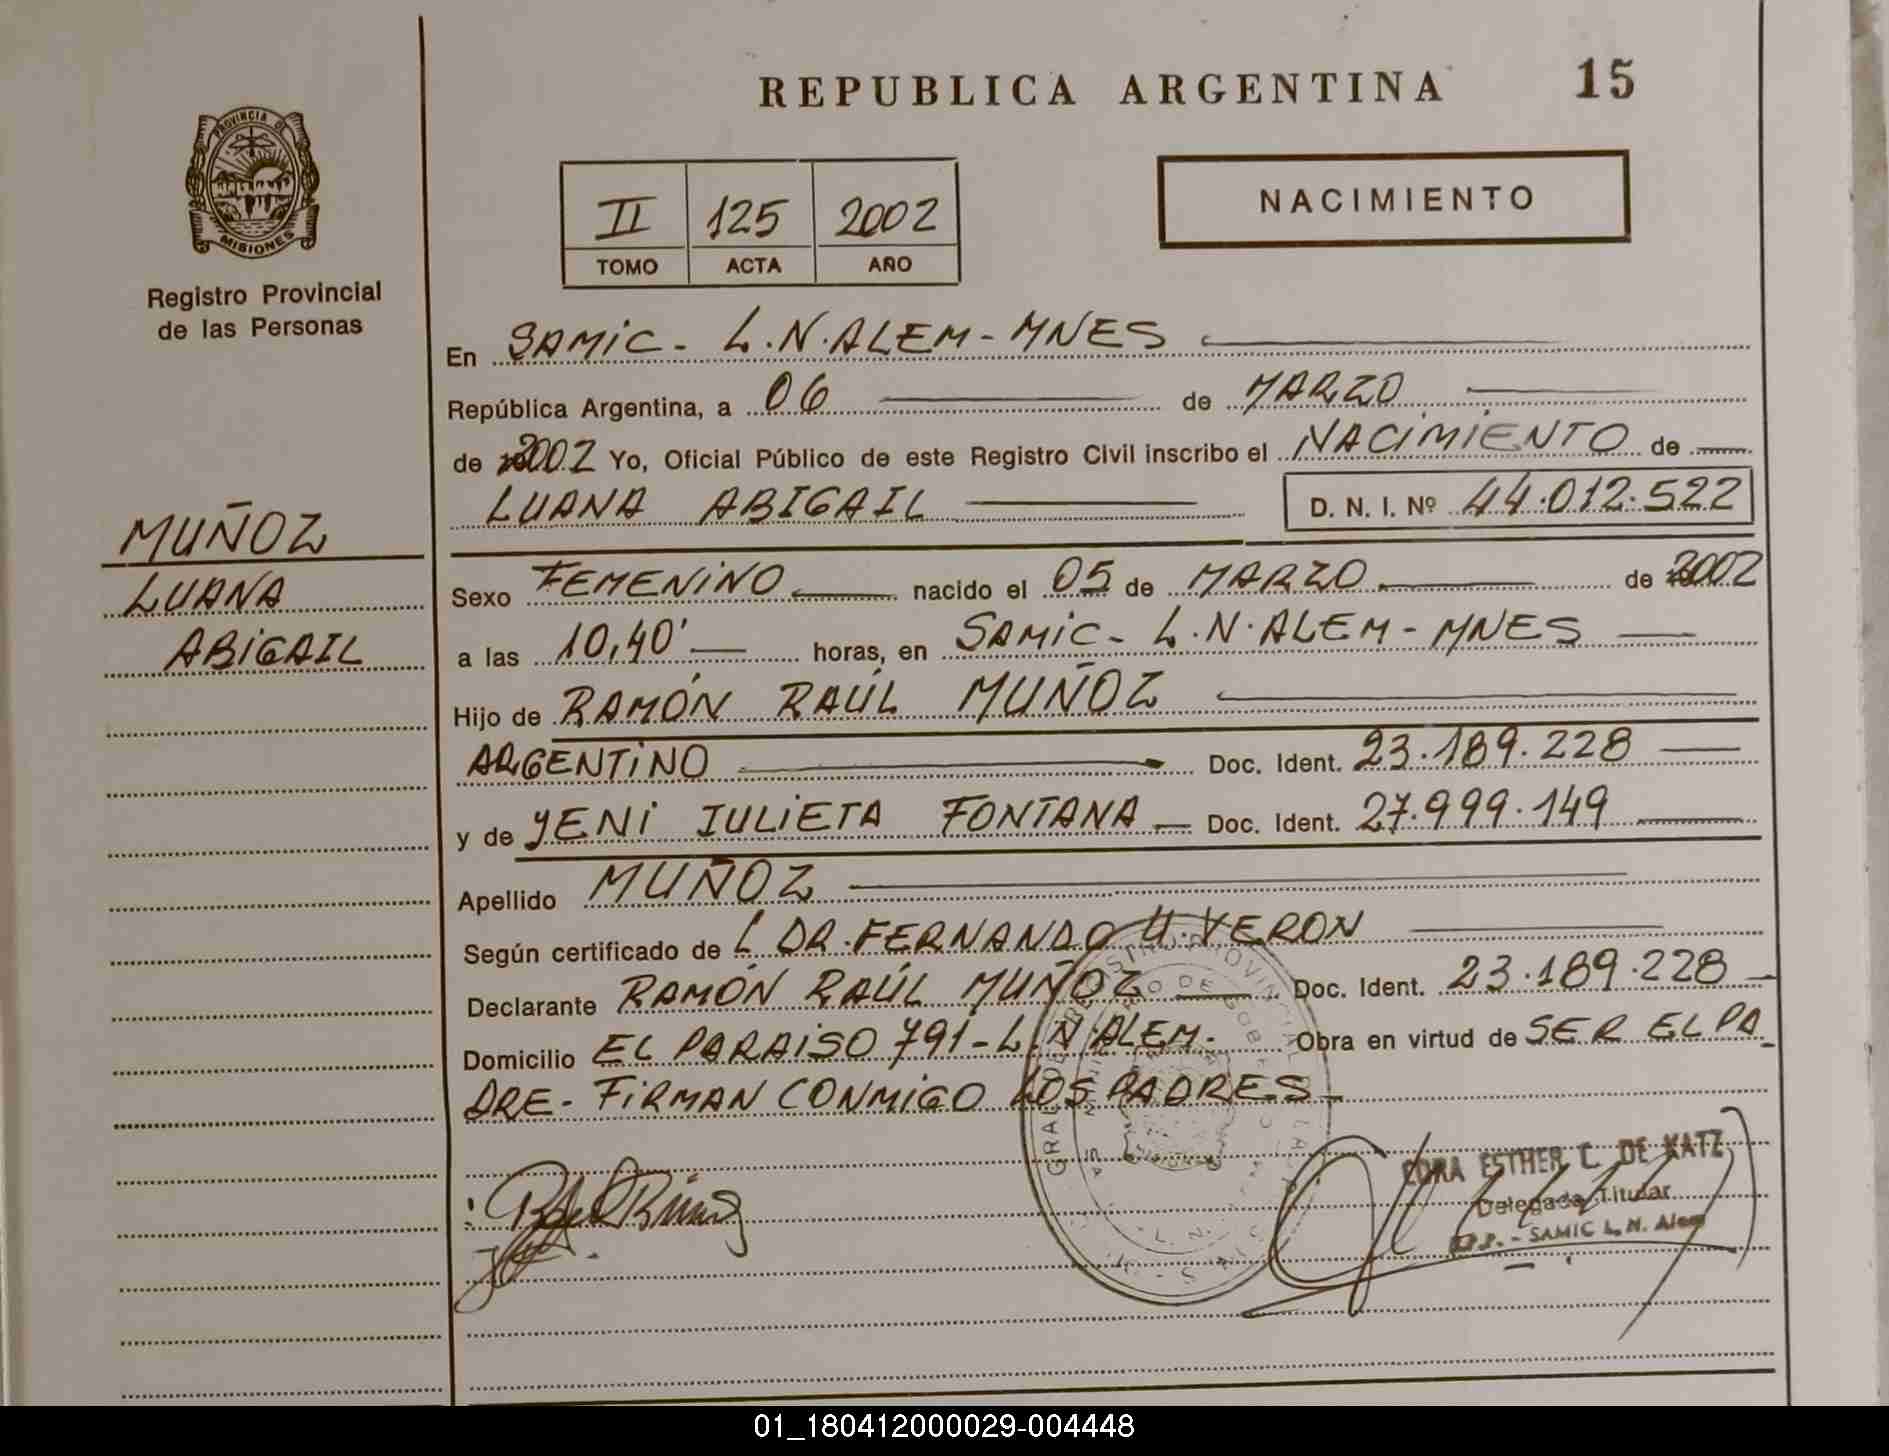 REPUBLICA ARGENTINA 15
PROVINCIA DE
MISIONES
Registro Provincial
de las Personas
II 125 2002
TOMO ACTA AÑO
NACIMIENTO
En SAMIC - L.N.ALEM - MNES
República Argentina, a 06 de MARZO
de 2002 Yo, Oficial Público de este Registro Civil inscribo el NACIMIENTO de
LUANA ABIGAIL D. N. I. Nº 44.012.522
MUÑOZ
LUANA
ABIGAIL
Sexo FEMENINO nacido el 05 de MARZO de 2002
a las 10,40' horas, en SAMIC - L.N.ALEM - MNES
Hijo de RAMÓN RAÚL MUÑOZ
ARGENTINO Doc. Ident. 23.189.228
y de YENI JULIETA FONTANA Doc. Ident. 27.999.149
Apellido MUÑOZ
Según certificado de DR. FERNANDO VERON
Declarante RAMÓN RAÚL MUÑOZ Doc. Ident. 23.189.228
Domicilio EL PARAISO 791 - L.N.ALEM. Obra en virtud de SER EL PA
DRE - FIRMAN CONMIGO LOS PADRES
ESTHER C. DE KATZ
Delegada Titular
SAMIC L. N. Alem
01_180412000029-004448